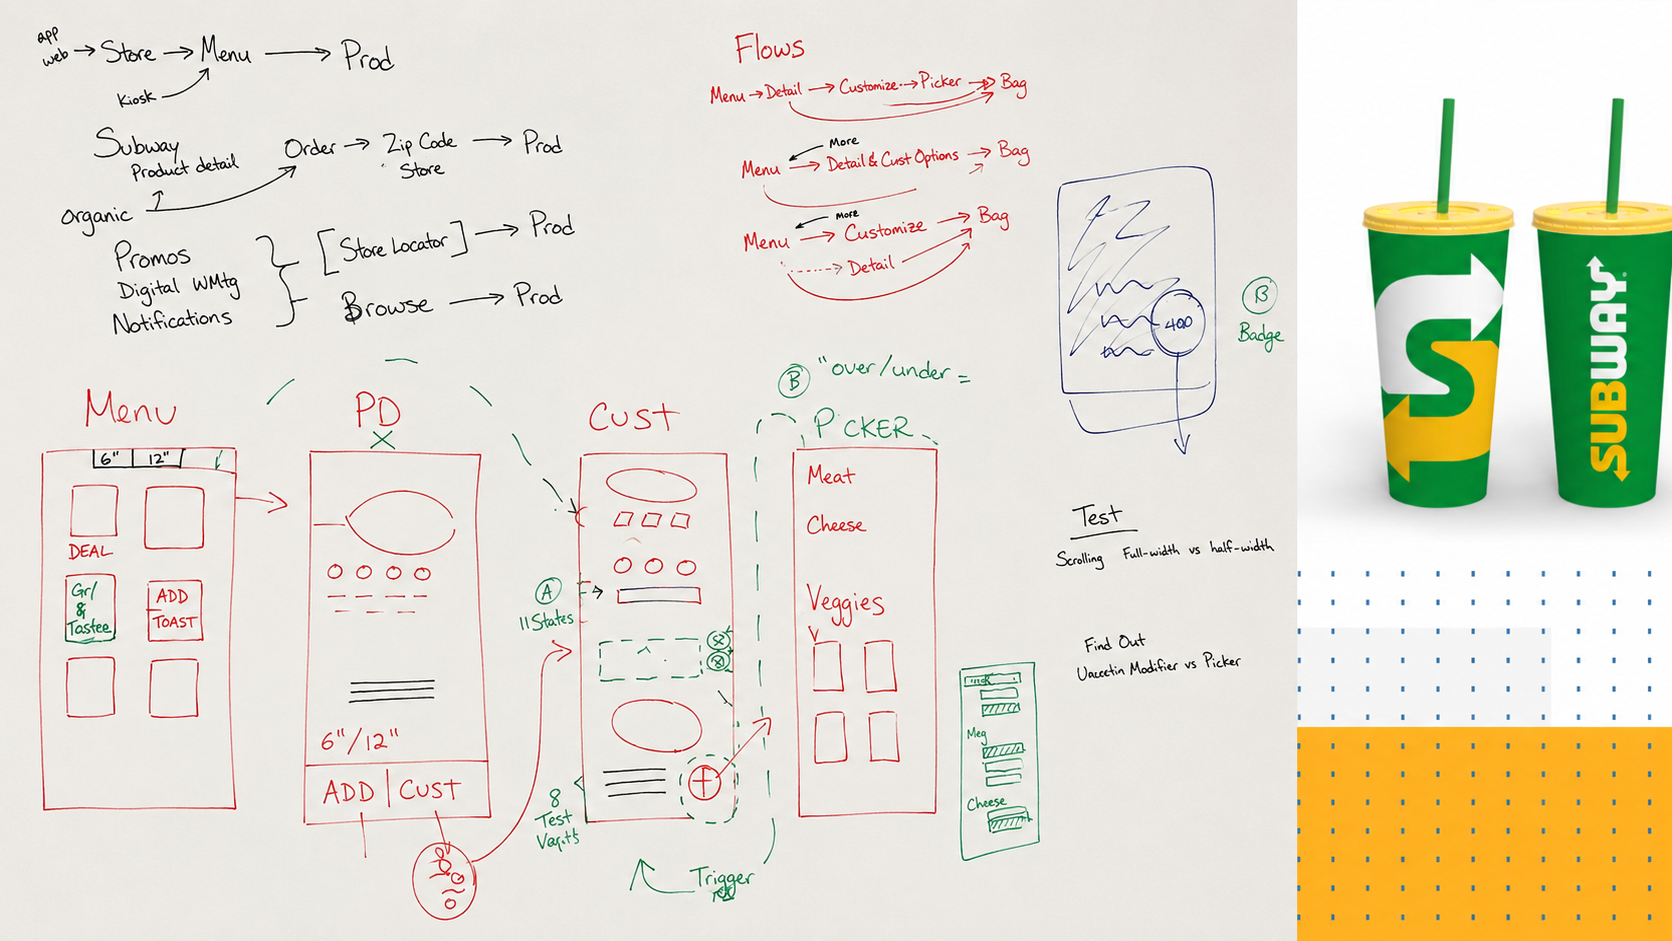 app
web → Store → Menu → Prod
Kiosk
Subway
Product detail
Order → Zip Code → Prod
Store
organic
Promos
Digital WMtg
Notifications
[Store Locator] → Prod
Browse → Prod
Flows
Menu → Detail → Customize → Picker → Bag
More
Menu → Detail & Cust Options → Bag
More
Menu → Customize → Bag
Detail
400
B
Badge
B "over/under =
Menu
6" 12"
DEAL
Gr/
&
Tastee
ADD
TOAST
PD
X
6"/12"
ADD | CUST
CUST
A
11 States
8
Test
Trigger
PiCKER
Meat
Cheese
Veggies
Meg
Cheese
Test
Scrolling Full-width vs half-width
Find Out
Modifier vs Picker
SUBWAY